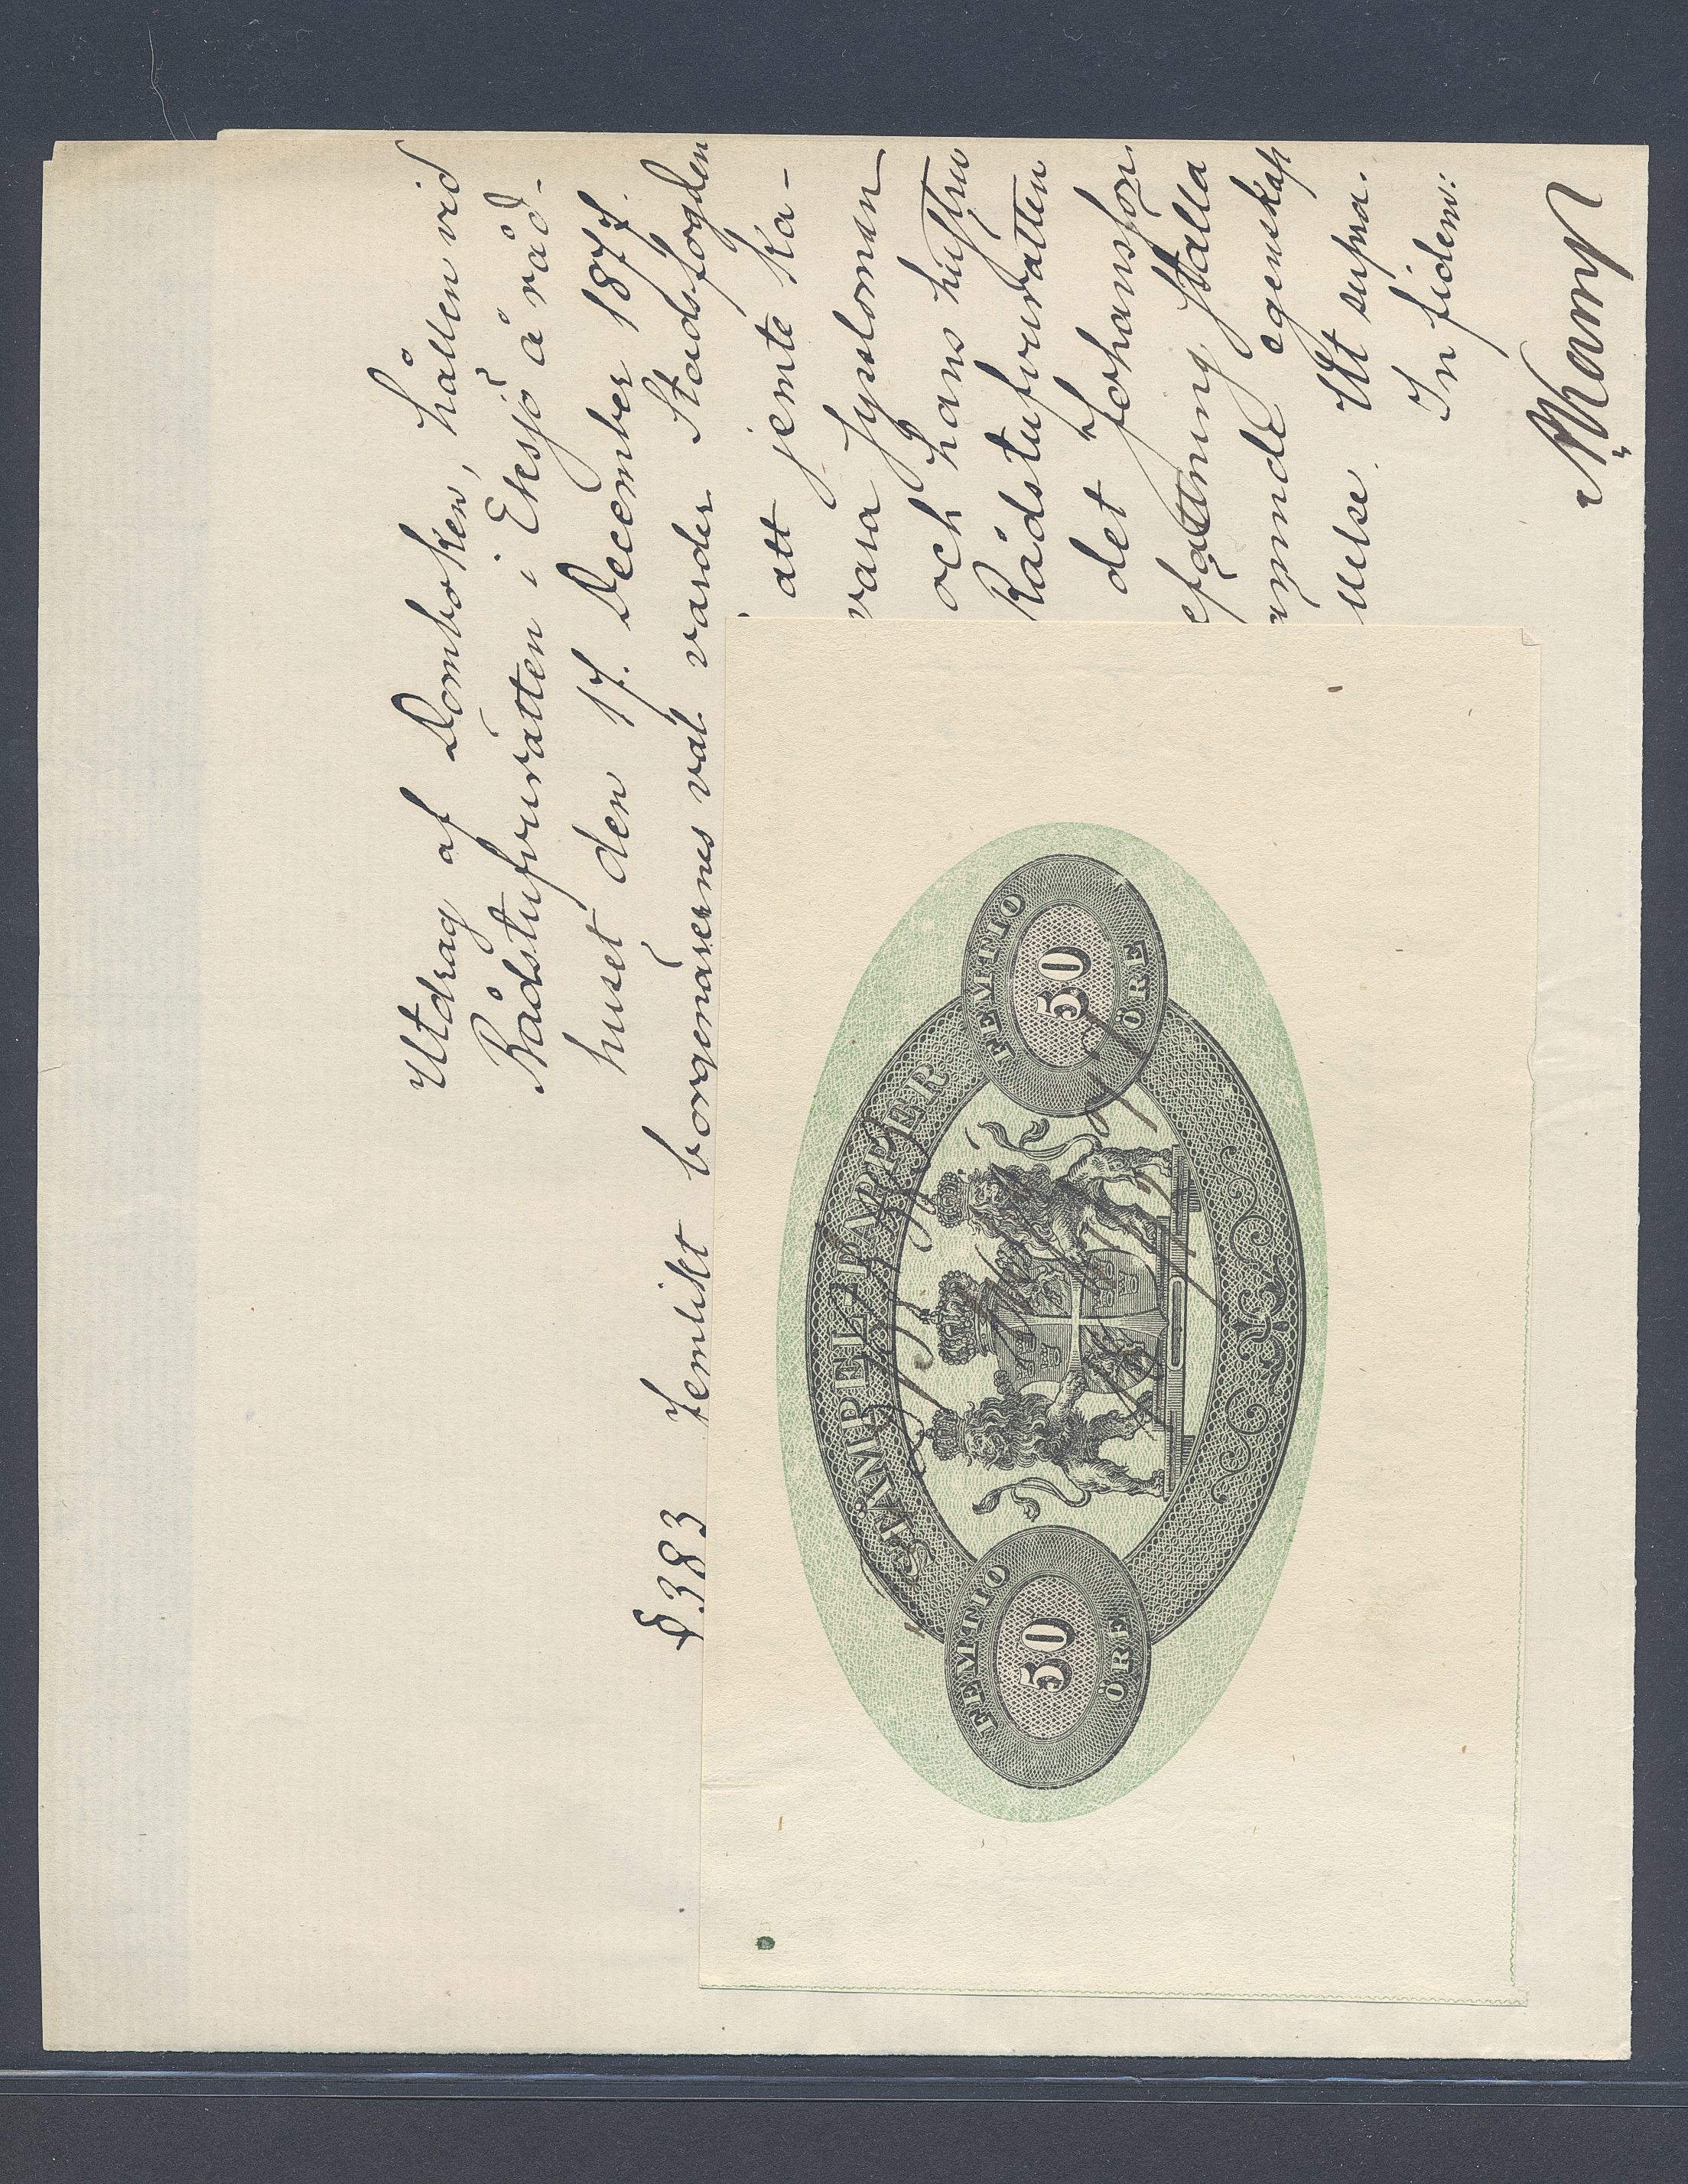 Utdrag af Domboken, hållen vid
Rådstufvurätten i Eksjö å råd-
huset den 17. December 1877.
§.383 Jemlikt borgenärernes val varder Stadsfogden
att jemte Ka-
vara Sysslomän
och hans hustru
Rådstufvurätten
det Johansson
efattning ställa
ämnde egenskap
else. Ut supra.
In fidem:
STÄMPEL-PAPPER
FEMTIO
50
ÖRE
FEMTIO
50
ÖRE